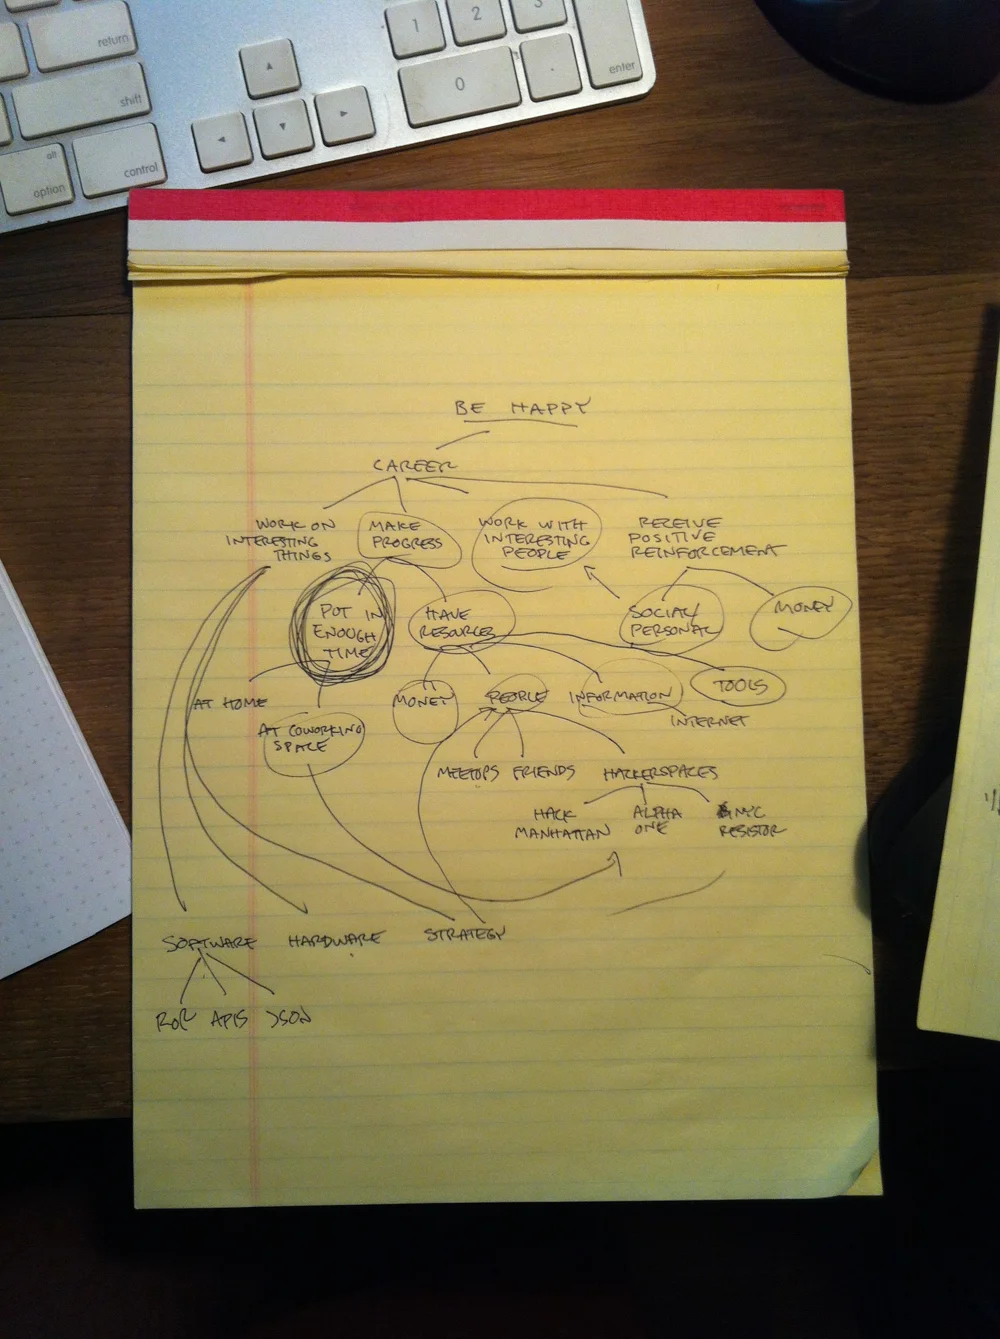 return
shift
alt
option
control
1
2
3
0
.
enter
BE HAPPY
CAREER
WORK ON
INTERESTING
THINGS
MAKE
PROGRESS
WORK WITH
INTERESTING
PEOPLE
RECEIVE
POSITIVE
REINFORCEMENT
PUT IN
ENOUGH
TIME
HAVE
RESOURCES
SOCIAL/
PERSONAL
MONEY
AT HOME
AT COWORKING
SPACE
MONEY
PEOPLE
INFORMATION
TOOLS
INTERNET
MEETUPS
FRIENDS
HACKERSPACES
HACK
MANHATTAN
ALPHA
ONE
NYC
RESISTOR
SOFTWARE
HARDWARE
STRATEGY
RoR
APIS
JSON